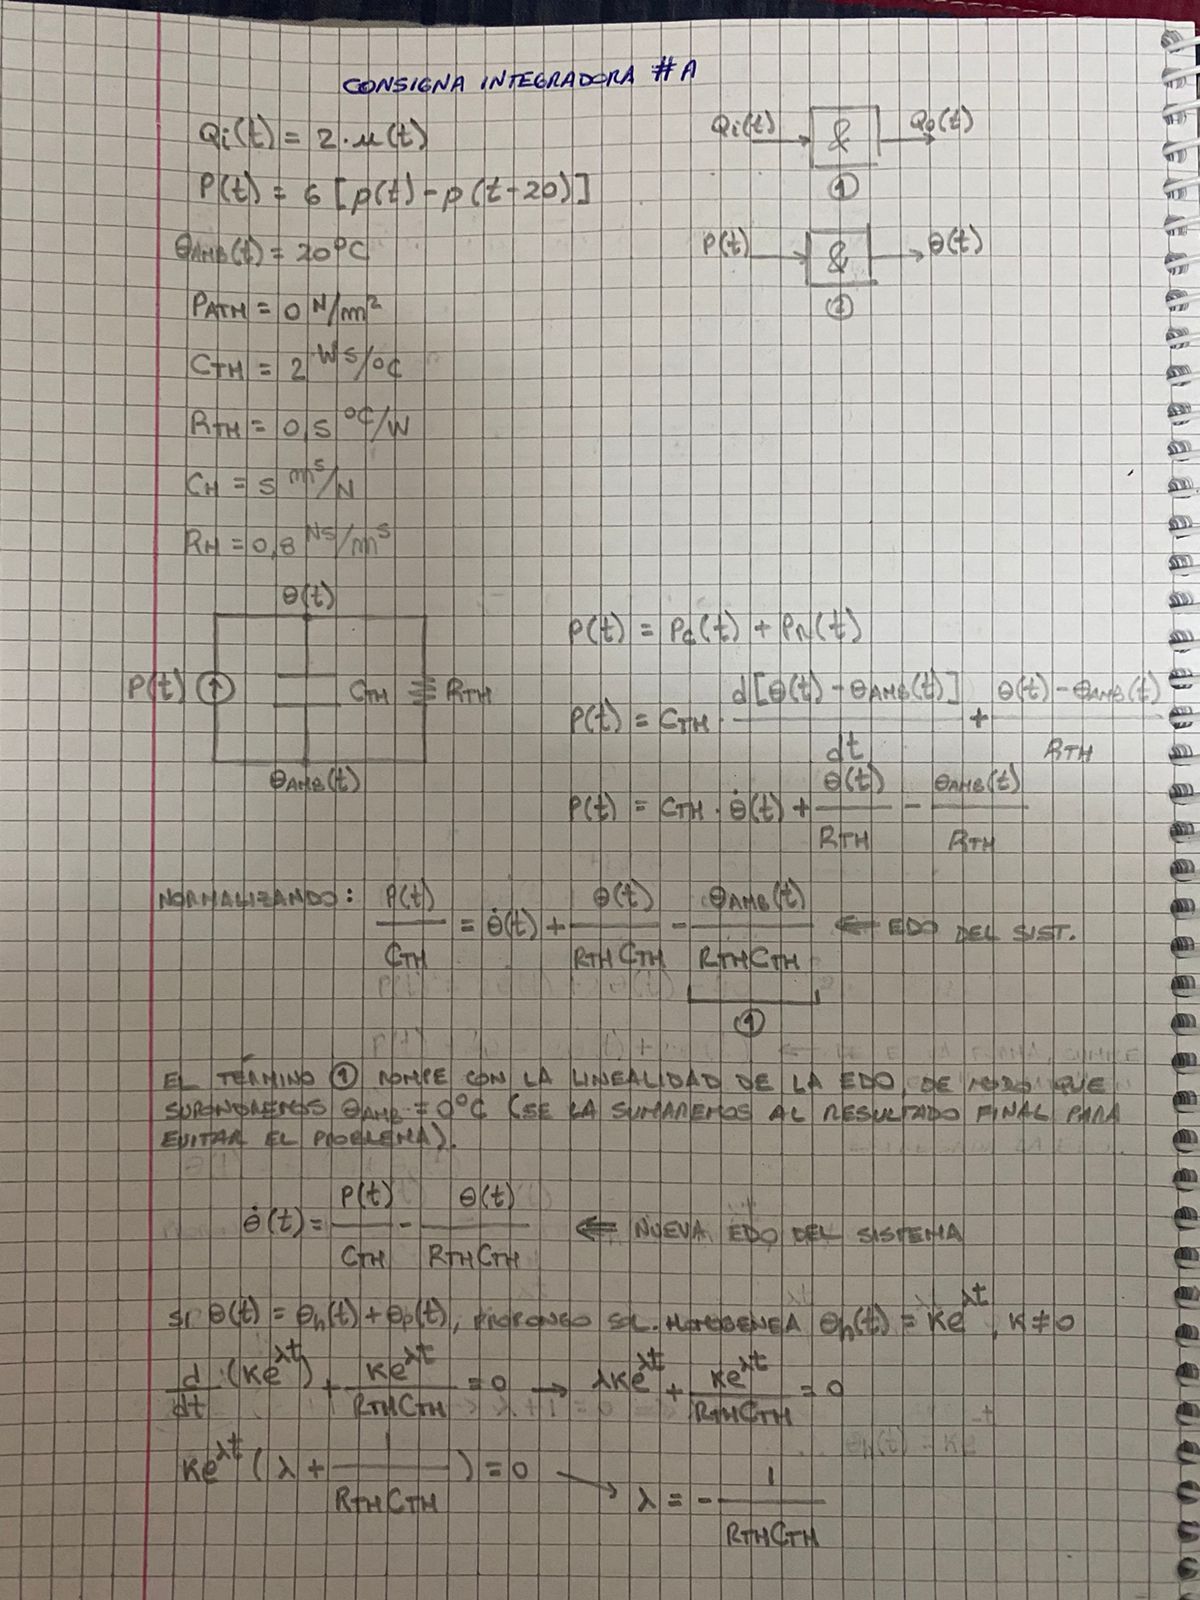 CONSIGNA INTEGRADORA #A
Qi(t) = 2·μ(t)
Qi(t) & Qo(t)
①
P(t) = 6 [ρ(t) - ρ(t-20)]
P(t) & θ(t)
②
θAMB(t) = 20°C
PATM = 0 N/m²
CTH = 2 WS/°C
RTH = 0,5 °C/W
CH = 5 m⁵/N
RH = 0,8 NS/m⁵
θ(t)
P(t) CTH RTH
θAMB(t)
P(t) = Pc(t) + PR(t)
P(t) = CTH · d[θ(t) - θAMB(t)]/dt + θ(t) - θAMB(t)/RTH
P(t) = CTH · θ̇(t) + θ(t)/RTH - θAMB(t)/RTH
NORMALIZANDO: P(t)/CTH = θ̇(t) + θ(t)/RTHCTH - θAMB(t)/RTHCTH ⇐ EDO DEL SIST.
①
EL TÉRMINO ① ROMPE CON LA LINEALIDAD DE LA EDO, DE MODO QUE
SUPONDREMOS θAMB = 0°C (SE LA SUMAREMOS AL RESULTADO FINAL PARA
EVITAR EL PROBLEMA).
θ̇(t) = P(t)/CTH - θ(t)/RTHCTH ⇐ NUEVA EDO DEL SISTEMA
SI θ(t) = θh(t) + θp(t), PROPONGO SOL. HOMOGENEA θh(t) = Ke^λt, K≠0
d/dt (Ke^λt) + Ke^λt/RTHCTH = 0 → λKe^λt + Ke^λt/RTHCTH = 0
Ke^λt (λ + 1/RTHCTH) = 0 → λ = - 1/RTHCTH